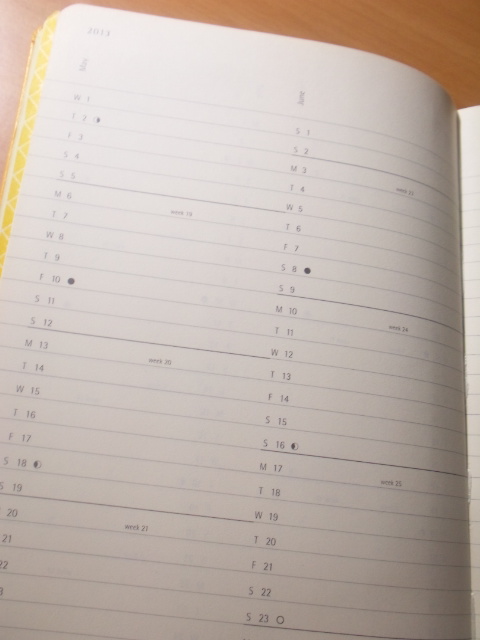 2013
May
W 1
T 2
F 3
S 4
S 5
M 6 week 19
T 7
W 8
T 9
F 10
S 11
S 12
M 13 week 20
T 14
W 15
T 16
F 17
S 18
S 19
20 week 21
21
22
3
June
S 1
S 2
M 3 week 23
T 4
W 5
T 6
F 7
S 8
S 9
M 10 week 24
T 11
W 12
T 13
F 14
S 15
S 16
M 17 week 25
T 18
W 19
T 20
F 21
S 22
S 23